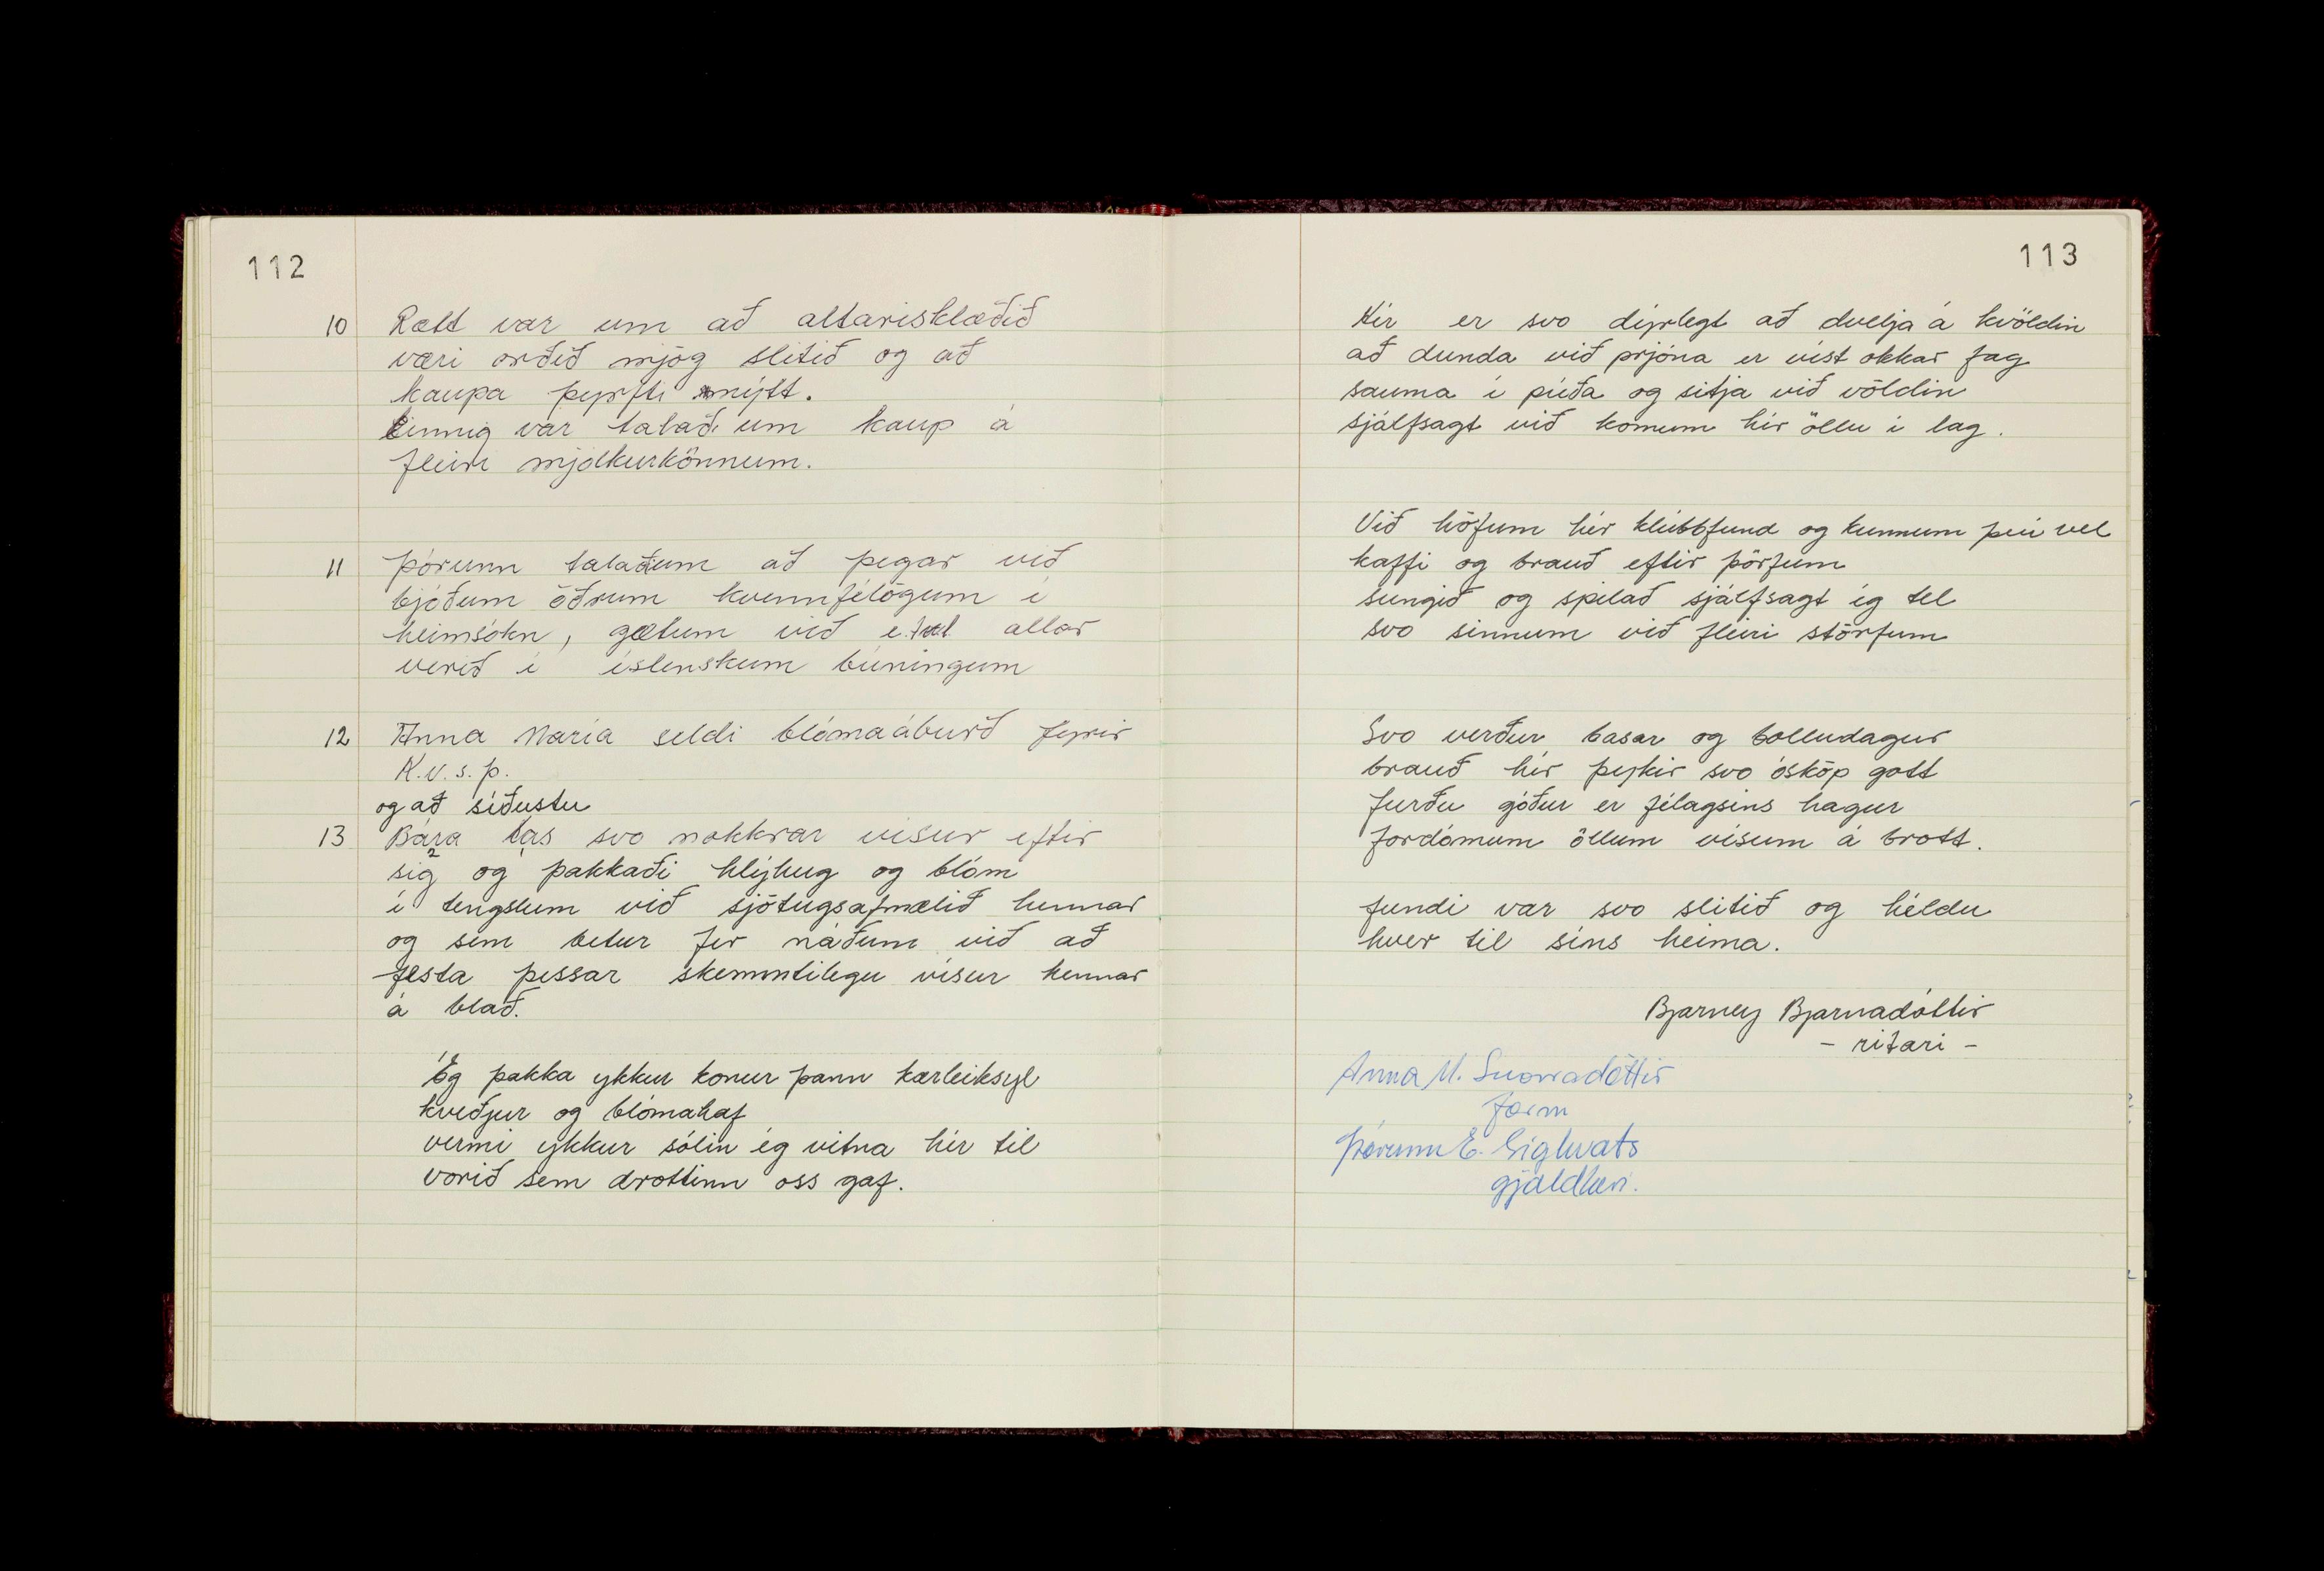 112
10 Rætt var um að altarisklæðið
væri orðið mjög slitið og að
kaupa þyrfti nýtt.
Einnig var talað um kaup á
fleiri mjólkurkönnum.
11 Þórunn talaði um að þegar við
bjóðum öðrum kvennfélögum í
heimsókn, gætum við e.t.v. allar
verið í íslenskum búningum
12 Anna María seldi blómaáburð fyrir
K.v.s.þ.
og að síðustu
13 Bára las svo nokkrar vísur eftir
sig og þakkaði hlýhug og blóm
í tengslum við sjötugsafmælið hennar
og sem betur fer náðum við að
festa þessar skemmtilegu vísur hennar
á blað.
Ég þakka ykkur konur þann kærleiksyl
kveðjur og blómahaf
vermi ykkur sólin ég vitna hér til
vorið sem drottinn oss gaf.
113
Hér er svo dýrlegt að dvelja á kvöldin
að dunda við prjóna er víst okkar fag
sauma í púða og sitja við völdin
sjálfsagt við komum hér öllu í lag.
Við höfum hér klúbbfund og kunnum því vel
kaffi og brauð eftir þörfum
sungið og spilað sjálfsagt ég tel
svo sinnum við fleiri störfum
Svo verður basar og bolludagur
brauð hér þykir svo ósköp gott
furðu góður er félagsins hagur
fordómum öllum vísum á brott.
fundi var svo slitið og héldu
hver til síns heima.
Bjarney Bjarnadóttir
- ritari -
Anna M. Snorradóttir
form
Þórunn E. Sighvats
gjaldkeri.